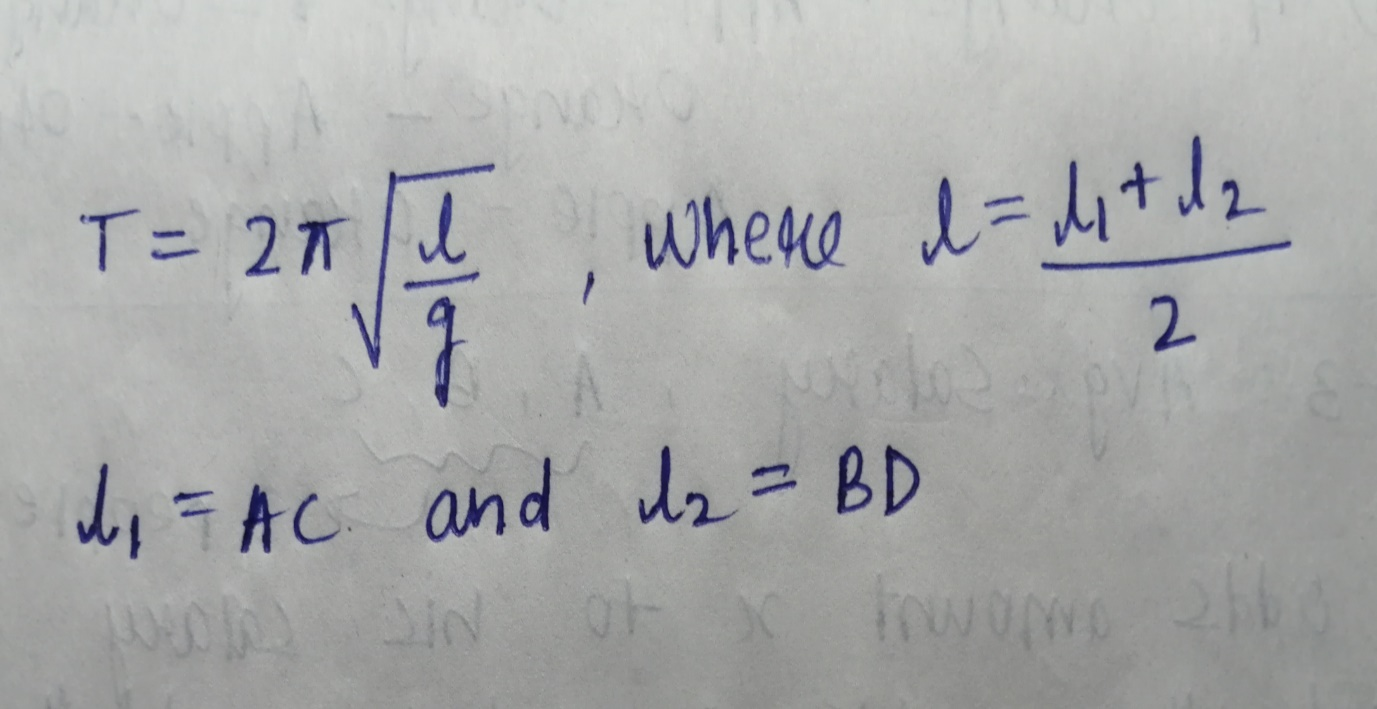 T = 2π√(l/g) , where l = (l₁ + l₂)/2
l₁ = AC and l₂ = BD